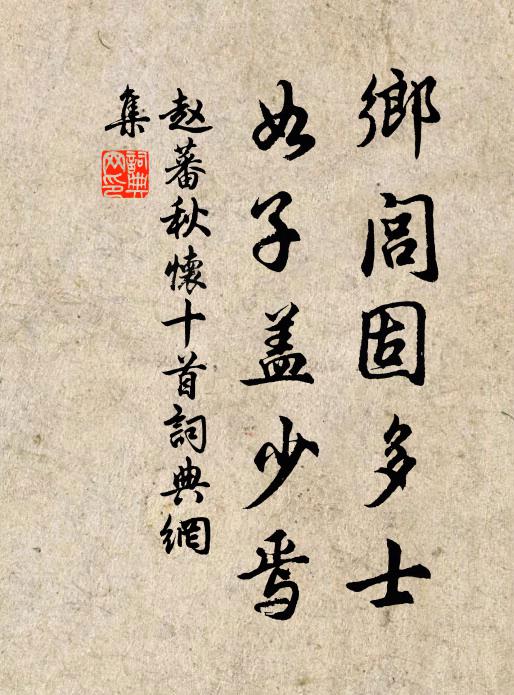 鄉閭固多士
如子盖少焉
赵蕃秋懷十首詞典網
集
詞典網印